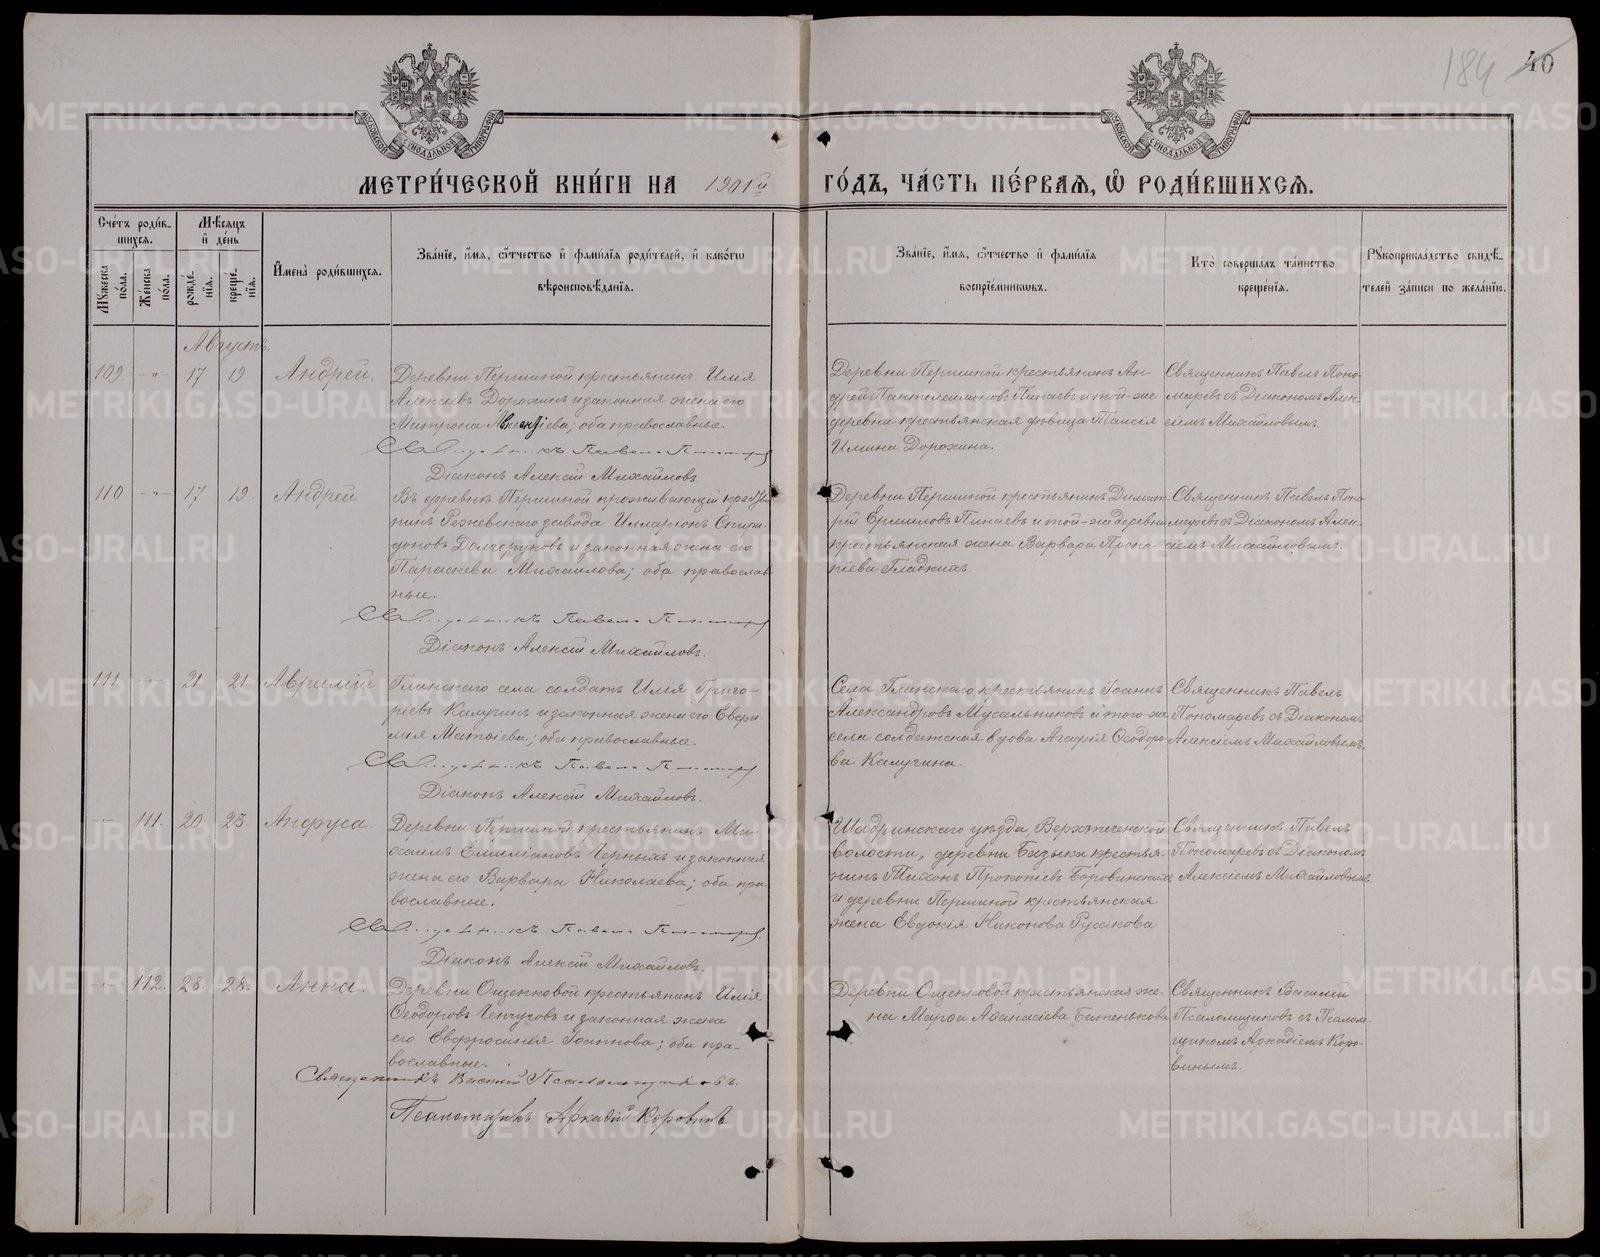 184 40
МЕТРИ́ЧЕСКОЙ КНИ́ГИ НА 1901й ГО́ДЪ, ЧА́СТЬ ПЕ́РВАѦ, Ѽ РОДИ́ВШИХСѦ.
Сче́тъ роди́в-
шихсѧ.
Мꙋжеска по́ла.
Же́нска по́ла.
Мѣ́сѧцъ
и҆ де́нь
рожде́-
нїѧ.
креще́-
нїѧ.
И҆мена̀ роди́вшихсѧ.
Зва́нїе, и҆́мѧ, ѻ҆́тчество и҆ фами́лїѧ роди́телей, и҆ како́гѡ
вѣроисповѣ́данїѧ.
Зва́нїе, и҆́мѧ, ѻ҆́тчество и҆ фами́лїѧ
воспрїе́мникѡвъ.
Кто̀ соверша́лъ та́инство
креще́нїѧ.
Рꙋкоприкла́дство свидѣ́-
телей за́писи по жела́нїю.
Августъ.
109. -"- 17 19 Андрей.
Деревни Першиной крестьянинъ Илія
Алексѣевъ Дорохинъ и законная жена его
Матрона; оба православные.
Діаконъ Алексій Михайловъ
Деревни Першиной крестьянинъ Ан-
дрей Пантелеимоновъ Пинаевъ и той-же
деревни крестьянская дѣвица Таисія
Ильина Дорохина.
Священникъ Павелъ Поно-
маревъ съ Діакономъ Алек-
сіемъ Михайловымъ
110 -"- 17 19. Андрей
Въ деревнѣ Першиной проживающій кресть-
янинъ Режевскаго завода Илларіонъ Спири-
доновъ Долгоруковъ и законная жена его
Параскева Михаилова; оба православ-
ные.
Діаконъ Алексій Михайловъ.
Деревни Першиной крестьянинъ Димит-
рій Ермиловъ Пинаевъ и той-же деревни
крестьянская жена Варвара Проко-
піева Гладкихъ.
Священникъ Павелъ Поно-
маревъ съ Діакономъ Алек-
сіемъ Михайловымъ.
111 21 21. Аврелій
Глинскаго села солдатъ Илія Григо-
ріевъ Калугинъ и законная жена его
Матѳіева; оба православные.
Діаконъ Алексій Михайловъ.
Села Глинскаго крестьянинъ Іоаннъ
Александровъ Мусальниковъ и того-же
села солдатская вдова Агафія Ѳеодоро-
ва Калугина.
Священникъ Павелъ
Пономаревъ съ Діакономъ
Алексіемъ Михайловымъ.
111. 20 23. Анфуса.
Деревни Першиной крестьянинъ Ми-
хаилъ Емиліановъ Черныхъ и законная
жена его Варвара Николаева; оба пра-
вославные.
Діаконъ Алексій Михайловъ.
Шадринскаго уѣзда, Верхтеченской
волости, деревни крестья-
нинъ Тихонъ Прокопіевъ Боровинскихъ
и деревни Першиной крестьянская
жена Евдокія Никонова Русакова
Священникъ Павелъ
Пономаревъ съ Діакономъ
Алексіемъ Михайловымъ.
112. 28. 28. Анна.
Деревни Ощепковой крестьянинъ Илія
Ѳеодоровъ Ченчуговъ и законная жена
его Евфросинія Іоаннова; оба пра-
вославные.
Священникъ Василій Псаломщиковъ.
Псаломщикъ Аркадій Коровинъ
Деревни Ощепковой крестьянская же-
на Марѳа Аѳанасіева Батенькова
Священникъ Василій
Псаломщиковъ съ Псалом-
щикомъ Аркадіемъ Коро-
винымъ.